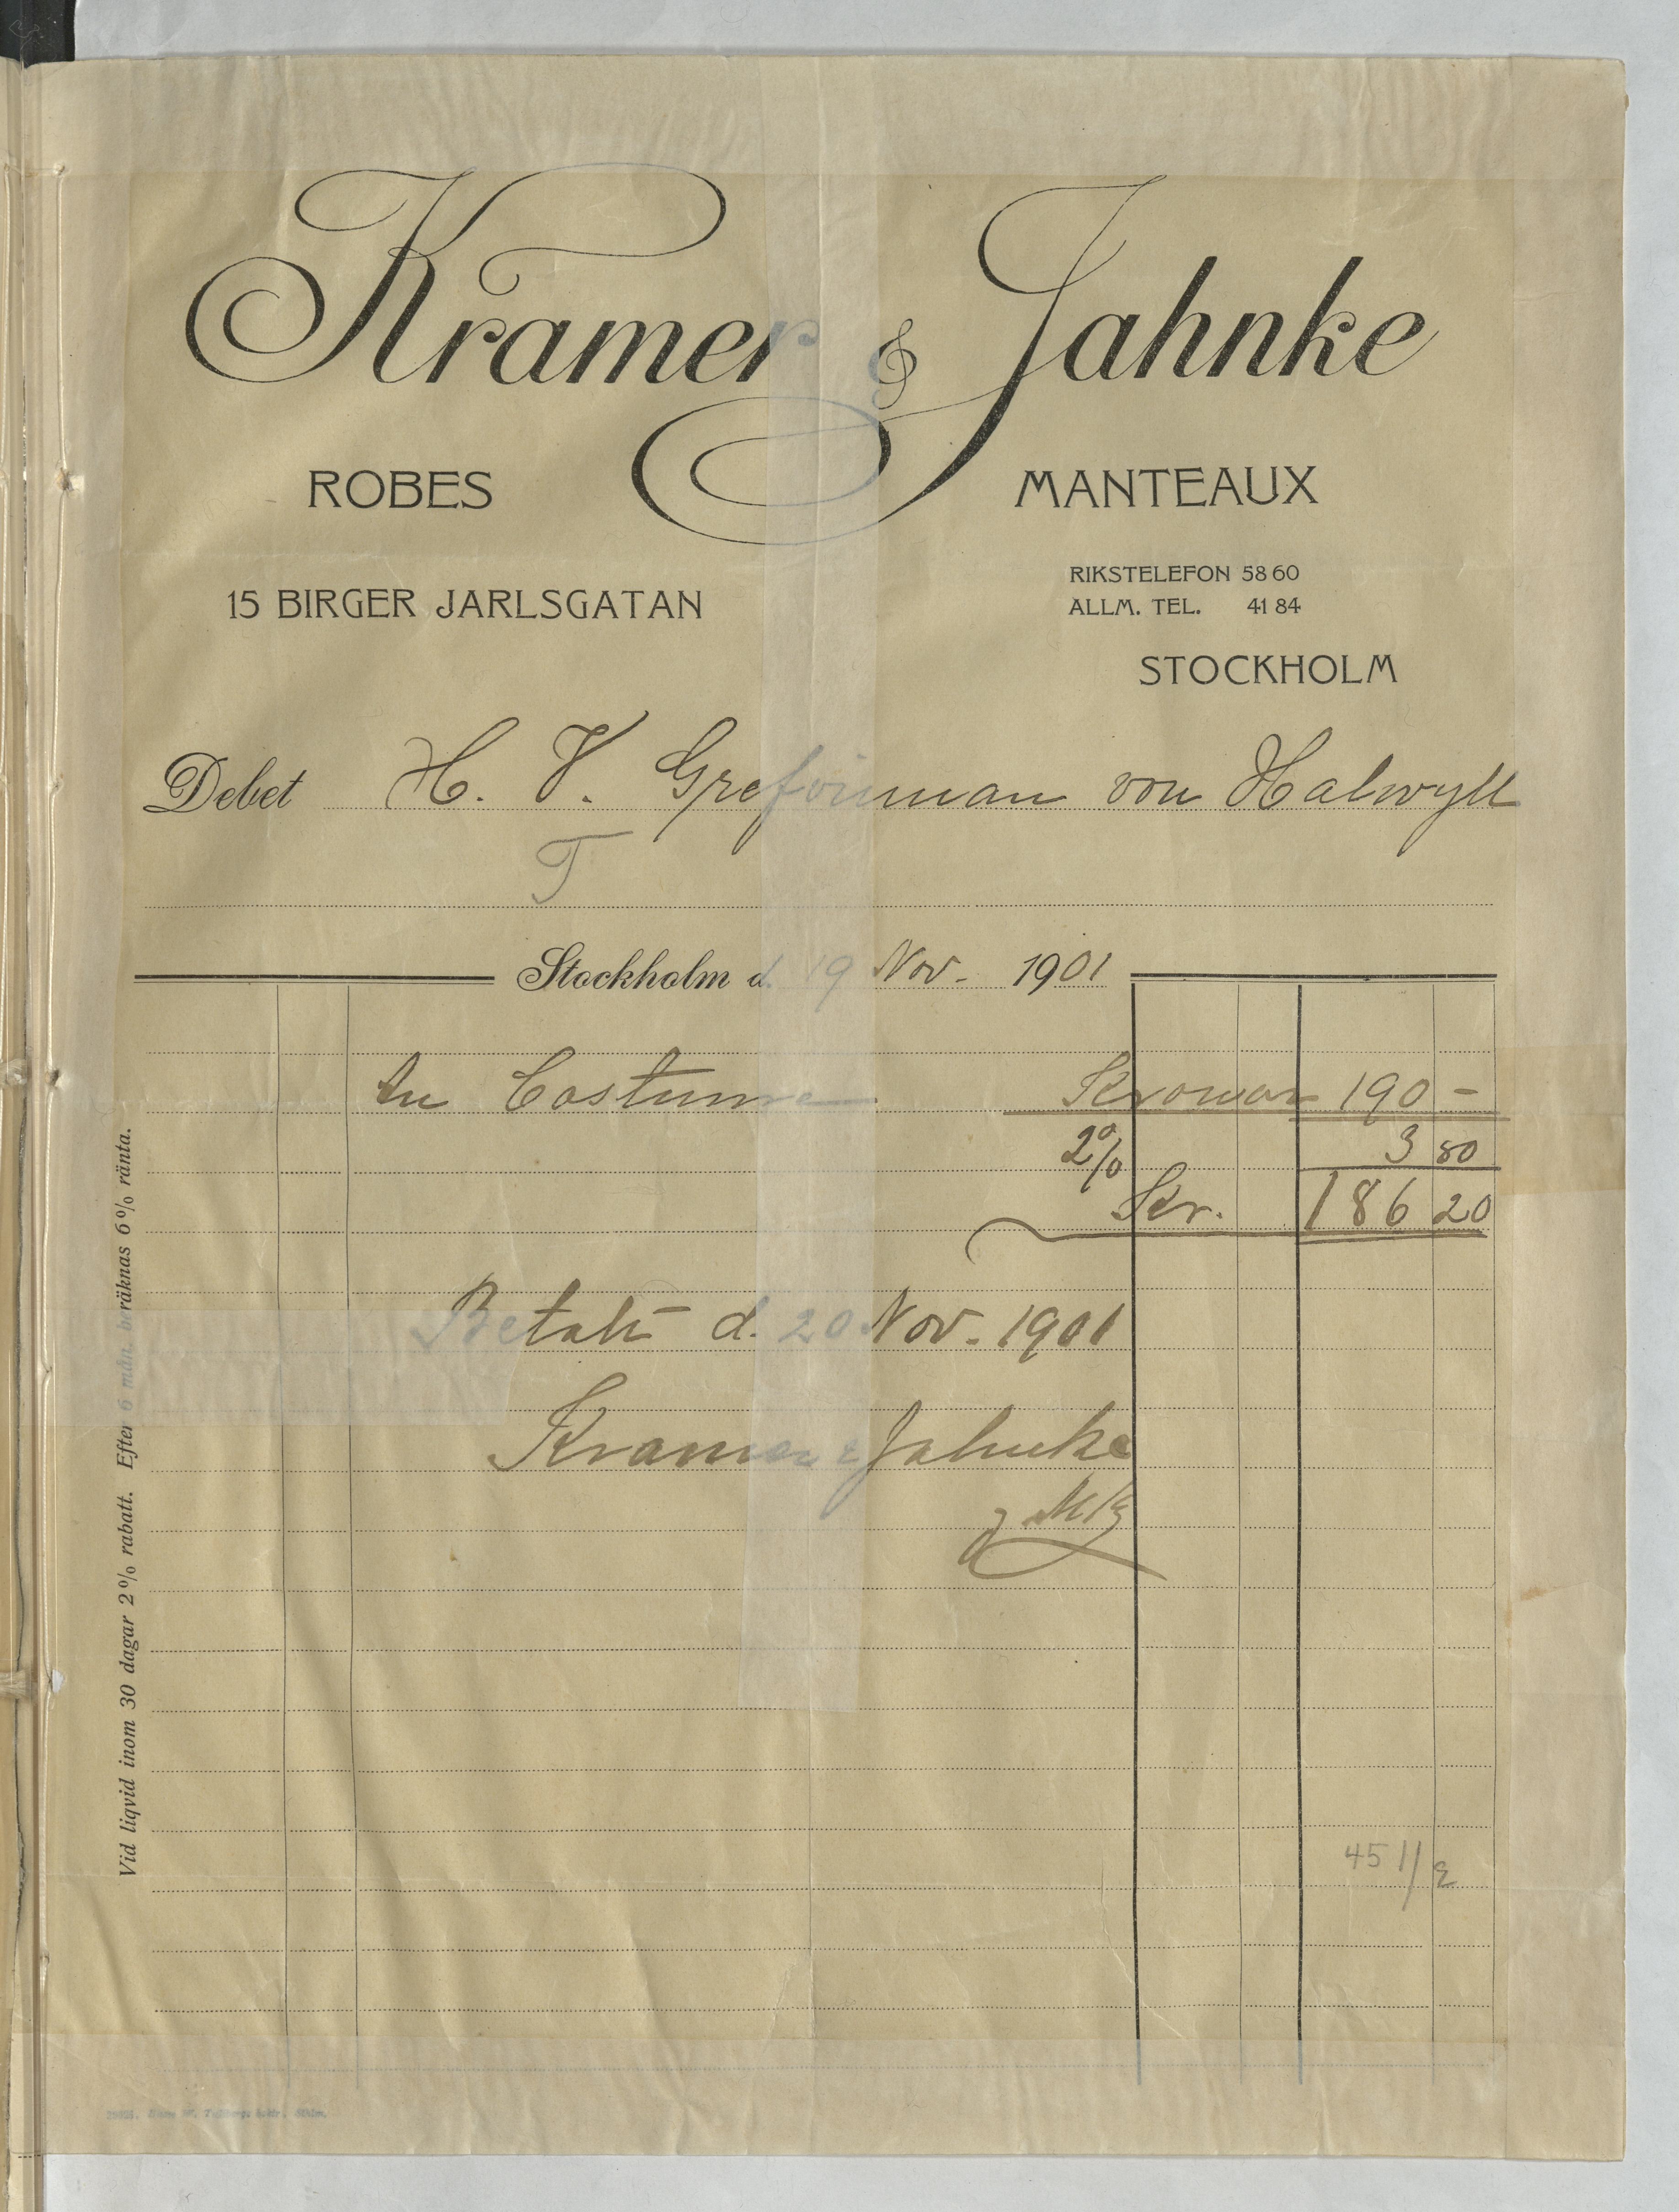 Kramer & Jahnke
ROBES MANTEAUX
15 BIRGER JARLSGATAN
RIKSTELEFON 58 60
ALLM. TEL. 41 84
STOCKHOLM
Debet H. V. Grefvinnan von Halwyll
T
Stockholm d. 19 Nov. 1901
En Costume Kronor 190 -
2% 3 80
Kr. 186 20
Betalt d. 20 Nov. 1901
Kramer & Jahnke
Vid liqvid inom 30 dagar 2% rabatt. Efter 6 mån. beräknas 6% ränta.
451/2